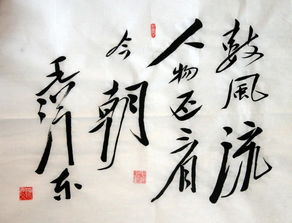 數風流
人物还看
今朝
毛泽东